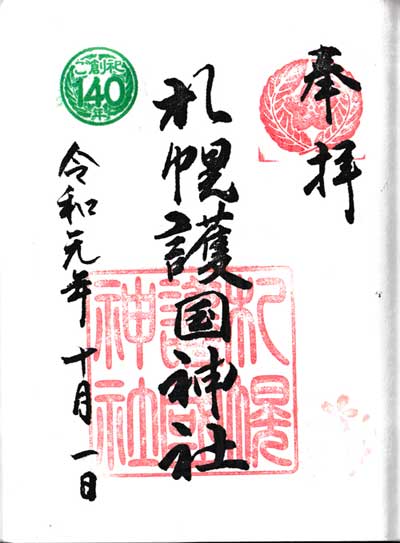 奉拝
札幌護国神社
札幌
護国
神社
ご創祀
140
年
令和元年十月一日